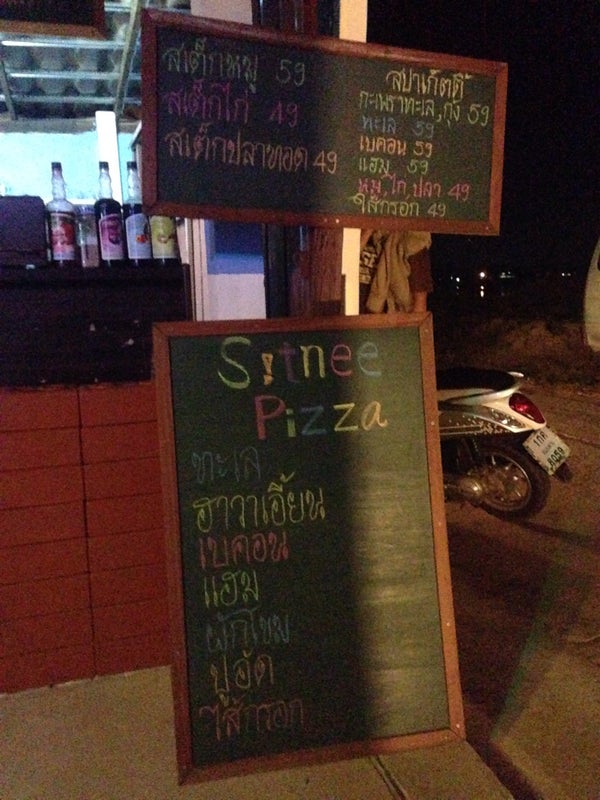 สเต็กหมู 59
สเต็กไก่ 49
สเต็กปลาทอด 49
สปาเก็ตตี้
กะเพราทะเล,กุ้ง 59
ทะเล 59
เบคอน 59
แฮม 59
หมู,ไก่,ปลา 49
ไส้กรอก 49
Sitnee
Pizza
ทะเล
ฮาวาเอี้ยน
เบคอน
แฮม
ผักโขม
ปูอัด
ไส้กรอก